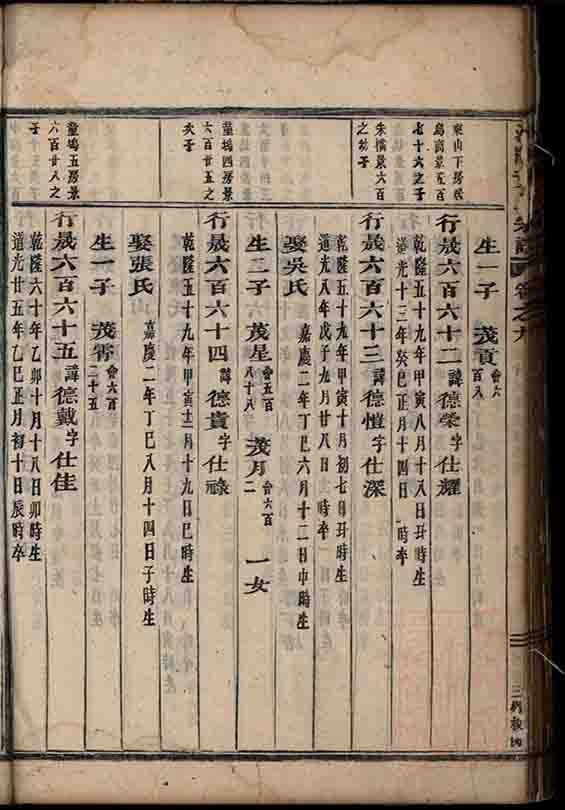 宗譜 卷之九
生一子 茂貢 會六百八
東山下房派
烏齒景五百
七十六之子
行晟六百六十二諱德榮字仕耀
乾隆五十九年甲寅八月十八日丑時生
道光十三年癸巳正月十四日 時卒
朱橋景六百
之幼子
行晟六百六十三諱德愷字仕深
乾隆五十九年甲寅十月初七日丑時生
道光八年戊子九月廿八日 時卒
娶吳氏 嘉慶二年丁巳六月十二日申時生
生二子 茂星 會五百八十八 茂月 會六百二 一女
童塢四房景
六百廿五之
次子
行晟六百六十四諱德貴字仕祿
乾隆五十九年甲寅十二月十九日巳時生
娶張氏 嘉慶二年丁巳八月十四日子時生
生一子 茂霄 會六百二十五
童塢五房景
六百廿八之
子
行晟六百六十五諱德戴字仕佳
乾隆六十年乙卯十月十八日卯時生
道光廿五年乙巳正月初十日辰時卒